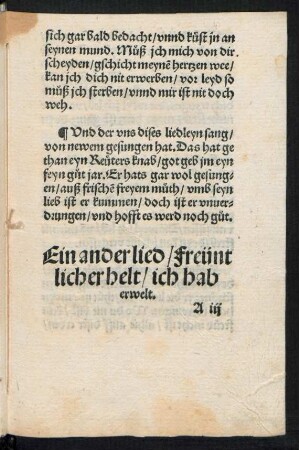 sich gar bald bedacht/vnnd küst jn an
seynen mund. Müß jch mich von dir
scheyden/gschicht meynē hertzen wee/
kan jch dich nit erwerben/vor leyd so
müß jch sterben/vnnd mir ist nit doch
weh.
¶ Vnd der vns dises liedleyn sang/
von newem gesungen hat. Das hat ge
than eyn Reüters knab/got geb jm eyn
feyn güt jar. Er hats gar wol gesung/
en/auß frischē freyem müth/vmb seyn
lieb ist er kummen/doch ist er vnuer-
drungen/vnd hofft es werd noch güt.
Ein ander lied/Freünt
licher helt/ich hab
erwelt.
A iij